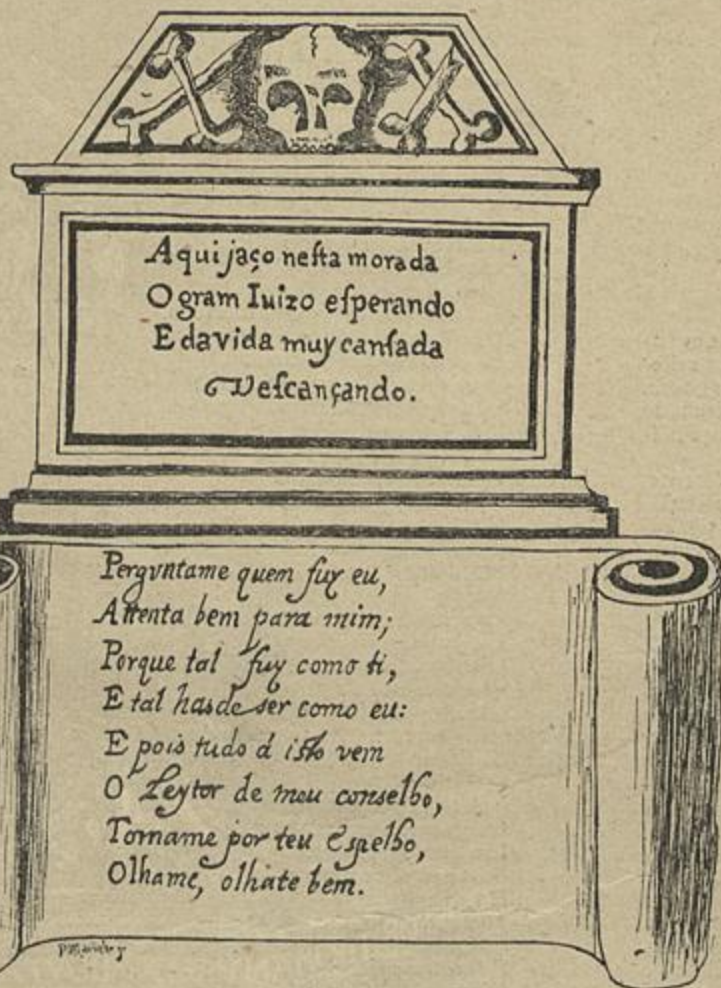 Aqui jaço neſta morada
O gram Iuizo eſperando
E da vida muy canſada
Deſcançando.
Pergvntame quem fuy eu,
Attenta bem para mim;
Porque tal fuy como ti,
E tal hasde ser como eu:
E pois tudo á iſto vem
O' Leytor de meu conselho,
Tomame por teu Espelho,
Olhame, olhate bem.